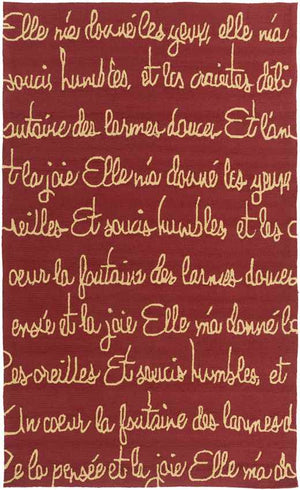 Elle m'a donné les yeux, elle m'a
soucis humbles, et les craintes déli
ontaine des larmes douces Et l'am
t la joie Elle m'a donné les yeux
reilles Et soucis humbles et les c
oeur la fontaine des larmes douces
ensée et la joie Elle m'a donné le
Les oreilles Et soucis humbles, et
Un coeur la fontaine des larmes d
Ce la pensée et la joie Elle m'a